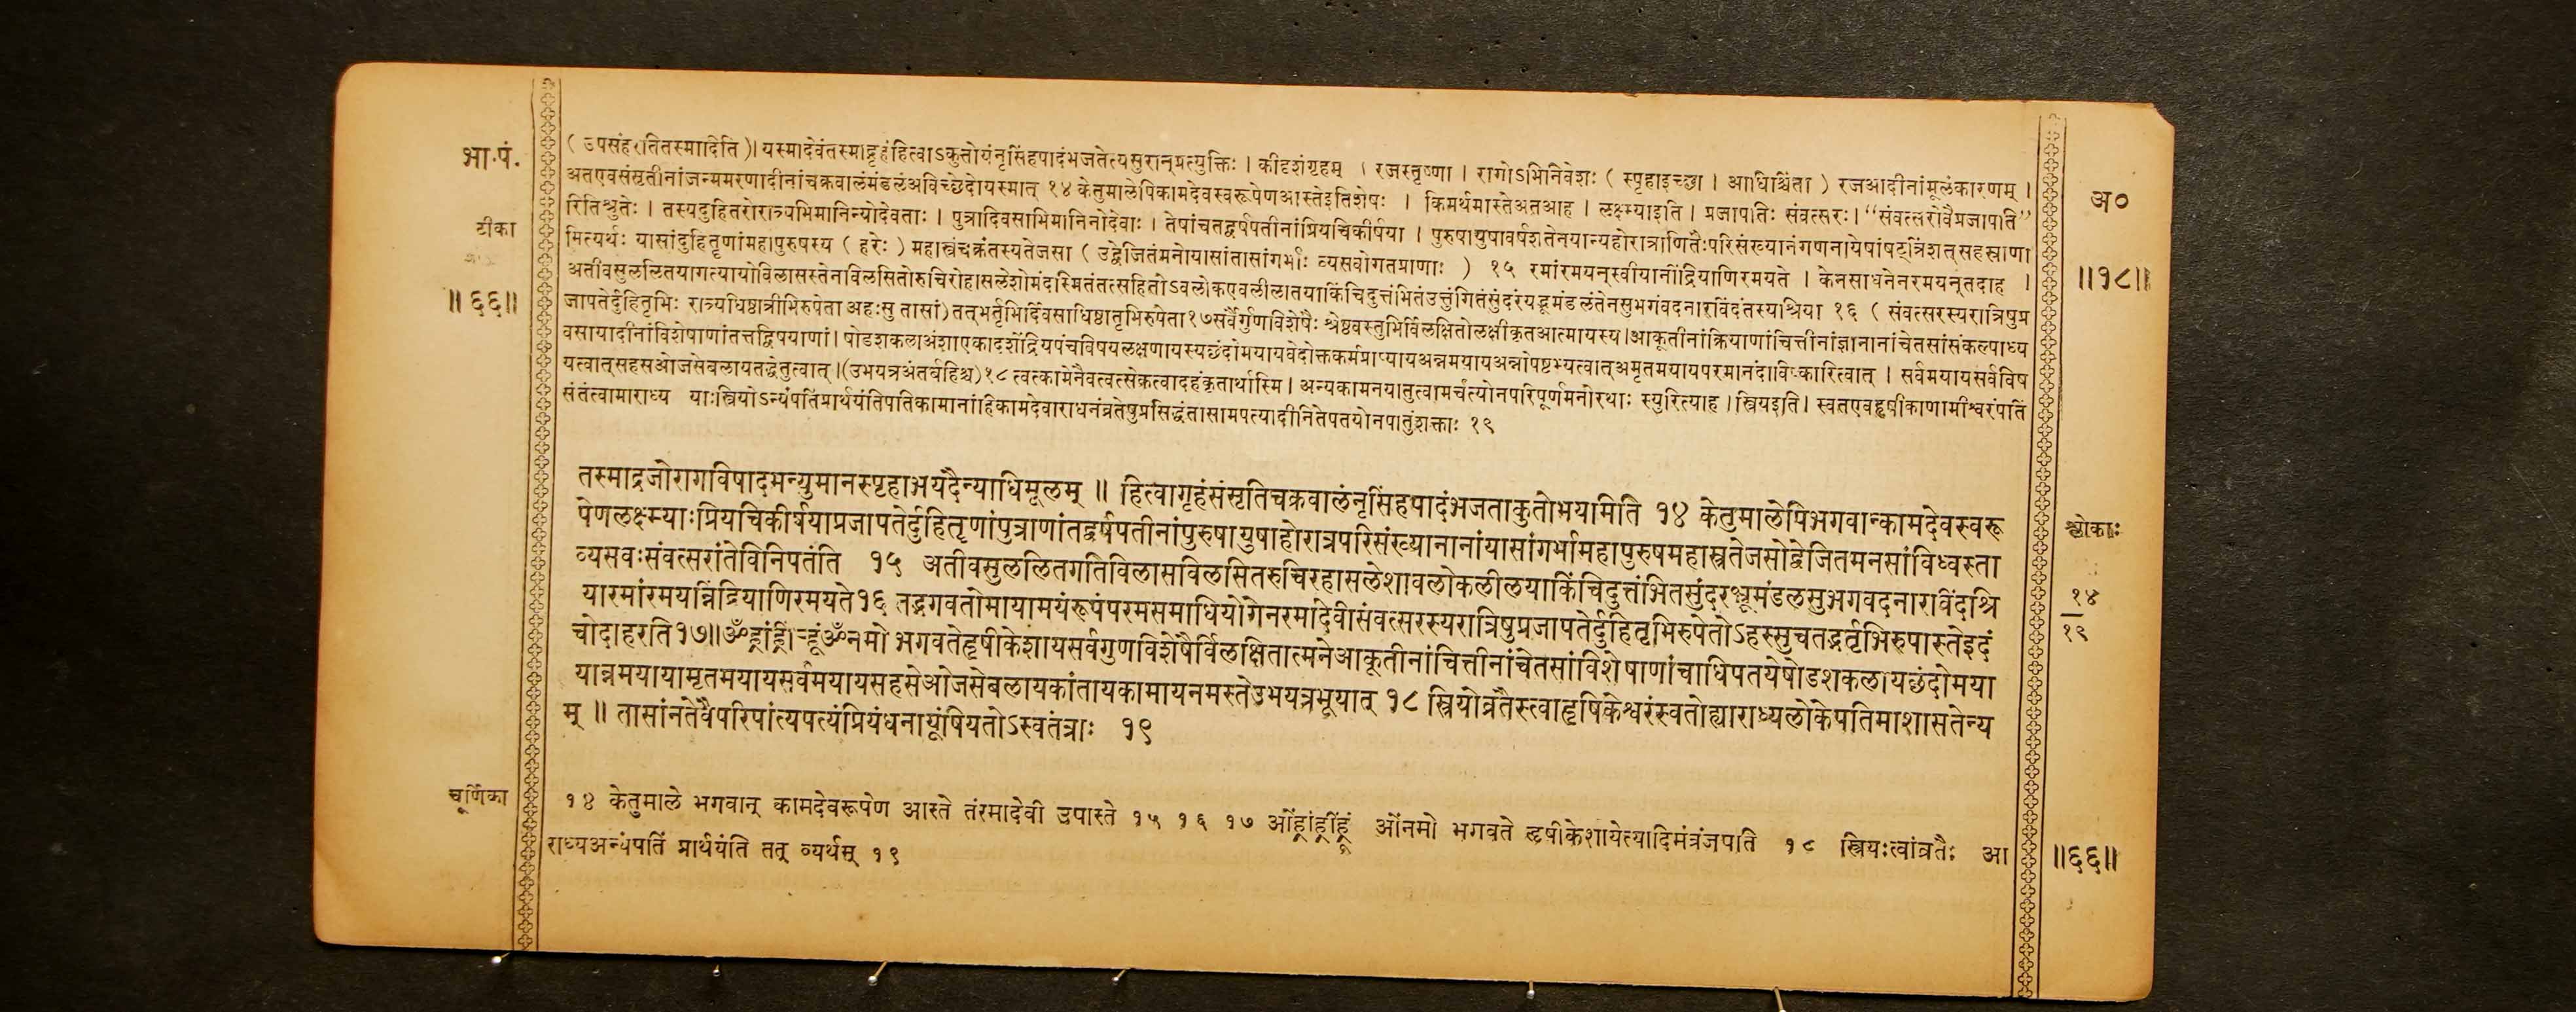 भा.पं.
टीका
॥ ६६॥
( उपसंहरतितस्मादिति )। यस्मादेवंतस्माद्गृहंहित्वाऽकुतोयंनृसिंहपादंभजतेत्यसुरान्प्रत्युक्तिः । कीदृशंगृहम् । रजस्तृष्णा । रागोऽभिनिवेशः ( स्पृहाइच्छा । आधिश्चिंता ) रजआदीनांमूलंकारणम् ।
अतएवसंसृतीनांजन्ममरणादीनांचक्रवालंमंडलंअविच्छेदोयस्मात् १४ केतुमालेपिकामदेवस्वरूपेणआस्तेइतिशेषः । किमर्थमास्तेअतआह । लक्ष्म्याइति । प्रजापतिः संवत्सरः। “संवत्सरोवैप्रजापति”
रितिश्रुतेः । तस्यदुहितरोरात्र्यभिमानिन्योदेवताः । पुत्रादिवसाभिमानिनोदेवाः । तेषांचतद्वर्षपतीनांप्रियचिकीर्षया । पुरुषायुषावर्षशतेनयान्यहोरात्राणितैःपरिसंख्यानंगणनायेषांषट्त्रिंशत्सहस्राणा
मित्यर्थः यासांदुहितॄणांमहापुरुषस्य ( हरेः ) महास्त्रंचक्रंतस्यतेजसा ( उद्वेजितंमनोयासांतासांगर्भाः व्यसवोगतप्राणाः ) १५ रमांरमयन्स्वीयानींद्रियाणिरमयते । केनसाधनेनरमयन्तदाह ।
अतीवसुललितयागत्यायोविलासस्तेनविलसितोरुचिरोहासलेशोमंदस्मितंतत्सहितोऽवलोकएवलीलातयाकिंचिदुत्तंभितंउत्तुंगितंसुंदरंयद्भ्रूमंडलंतेनसुभगंवदनारविंदंतस्यश्रिया १६ ( संवत्सरस्यरात्रिषुप्र
जापतेर्दुहितृभिः रात्र्यधिष्ठात्रीभिरुपेता अहःसु तासां) तत्भर्तृभिर्दिवसाधिष्ठातृभिरुपेता१७सर्वैर्गुणविशेषैः श्रेष्ठवस्तुभिर्विलक्षितोलक्षीकृतआत्मायस्य।आकूतीनांक्रियाणांचित्तीनांज्ञानानांचेतसांसंकल्पाध्य
वसायादीनांविशेषाणांतत्तद्विषयाणां। षोडशकलाअंशाएकादशेंद्रियपंचविषयलक्षणायस्यछंदोमयायवेदोक्तकर्मप्राप्यायअन्नमयायअन्नोपष्टभ्यत्वात्अमृतमयायपरमानंदाविष्कारित्वात् । सर्वमयायसर्वविष
यत्वात्सहसओजसेबलायतद्धेतुत्वात् ।(उभयत्रअंतर्बहिश्च)१८ त्वत्कामेनैवत्वत्सेकत्वादहंकृतार्थास्मि । अन्यकामनयातुत्वामर्चंत्योनपरिपूर्णमनोरथाः स्युरित्याह । स्त्रियइति। स्वतएवहृषीकाणामीश्वरंपतिं
संतंत्वामाराध्य याःस्त्रियोऽन्यंपतिंप्रार्थयंतिपतिकामानांहिकामदेवाराधनंव्रतेषुप्रसिद्धंतासामपत्यादीनितेपतयोनपातुंशक्ताः १९
तस्माद्रजोरागविषादमन्युमानस्पृहाभयदैन्याधिमूलम् ॥ हित्वागृहंसंसृतिचक्रवालंनृसिंहपादंभजताकुतोभयामिति १४ केतुमालेपिभगवान्कामदेवस्वरू
पेणलक्ष्म्याःप्रियचिकीर्षयाप्रजापतेर्दुहितॄणांपुत्राणांतद्वर्षपतीनांपुरुषायुषाहोरात्रपरिसंख्यानानांयासांगर्भामहापुरुषमहास्त्रतेजसोद्वेजितमनसांविध्वस्ता
व्यसवःसंवत्सरांतेविनिपतंति १५ अतीवसुललितगतिविलासविलसितरुचिरहासलेशावलोकलीलयाकिंचिदुत्तंभितसुंदरभ्रूमंडलसुभगवदनारविंदश्रि
यारमांरमयन्निंद्रियाणिरमयते१६ तद्भगवतोमायामयंरूपंपरमसमाधियोगेनरमादेवीसंवत्सरस्यरात्रिषुप्रजापतेर्दुहितृभिरुपेतोऽहस्सुचतद्भर्तृभिरुपास्तेइदं
चोदाहरति१७॥ॐह्रांह्रींह्रूंॐनमो भगवतेहृषीकेशायसर्वगुणविशेषैर्विलक्षितात्मनेआकूतीनांचित्तीनांचेतसांविशेषाणांचाधिपतयेषोडशकलायछंदोमया
यान्नमयायामृतमयायसर्वमयायसहसेओजसेबलायकांतायकामायनमस्तेउभयत्रभूयात् १८ स्त्रियोव्रतैस्त्वाहृषिकेश्वरंस्वतोह्याराध्यलोकेपतिमाशासतेन्य
म् ॥ तासांनतेवैपरिपांत्यपत्यंप्रियंधनायूंषियतोऽस्वतंत्राः १९
चूर्णिका
१४ केतुमाले भगवान् कामदेवरूपेण आस्ते तंरमादेवी उपास्ते १५ १६ १७ ओंह्रांह्रींह्रूं ओंनमो भगवते हृषीकेशायेत्यादिमंत्रंजपति १८ स्त्रियःत्वांव्रतैः आ
राध्यअन्यंपतिं प्रार्थयंति तत् व्यर्थम् १९
अ०
॥१८॥
श्लोकाः
१४
१९
॥६६॥